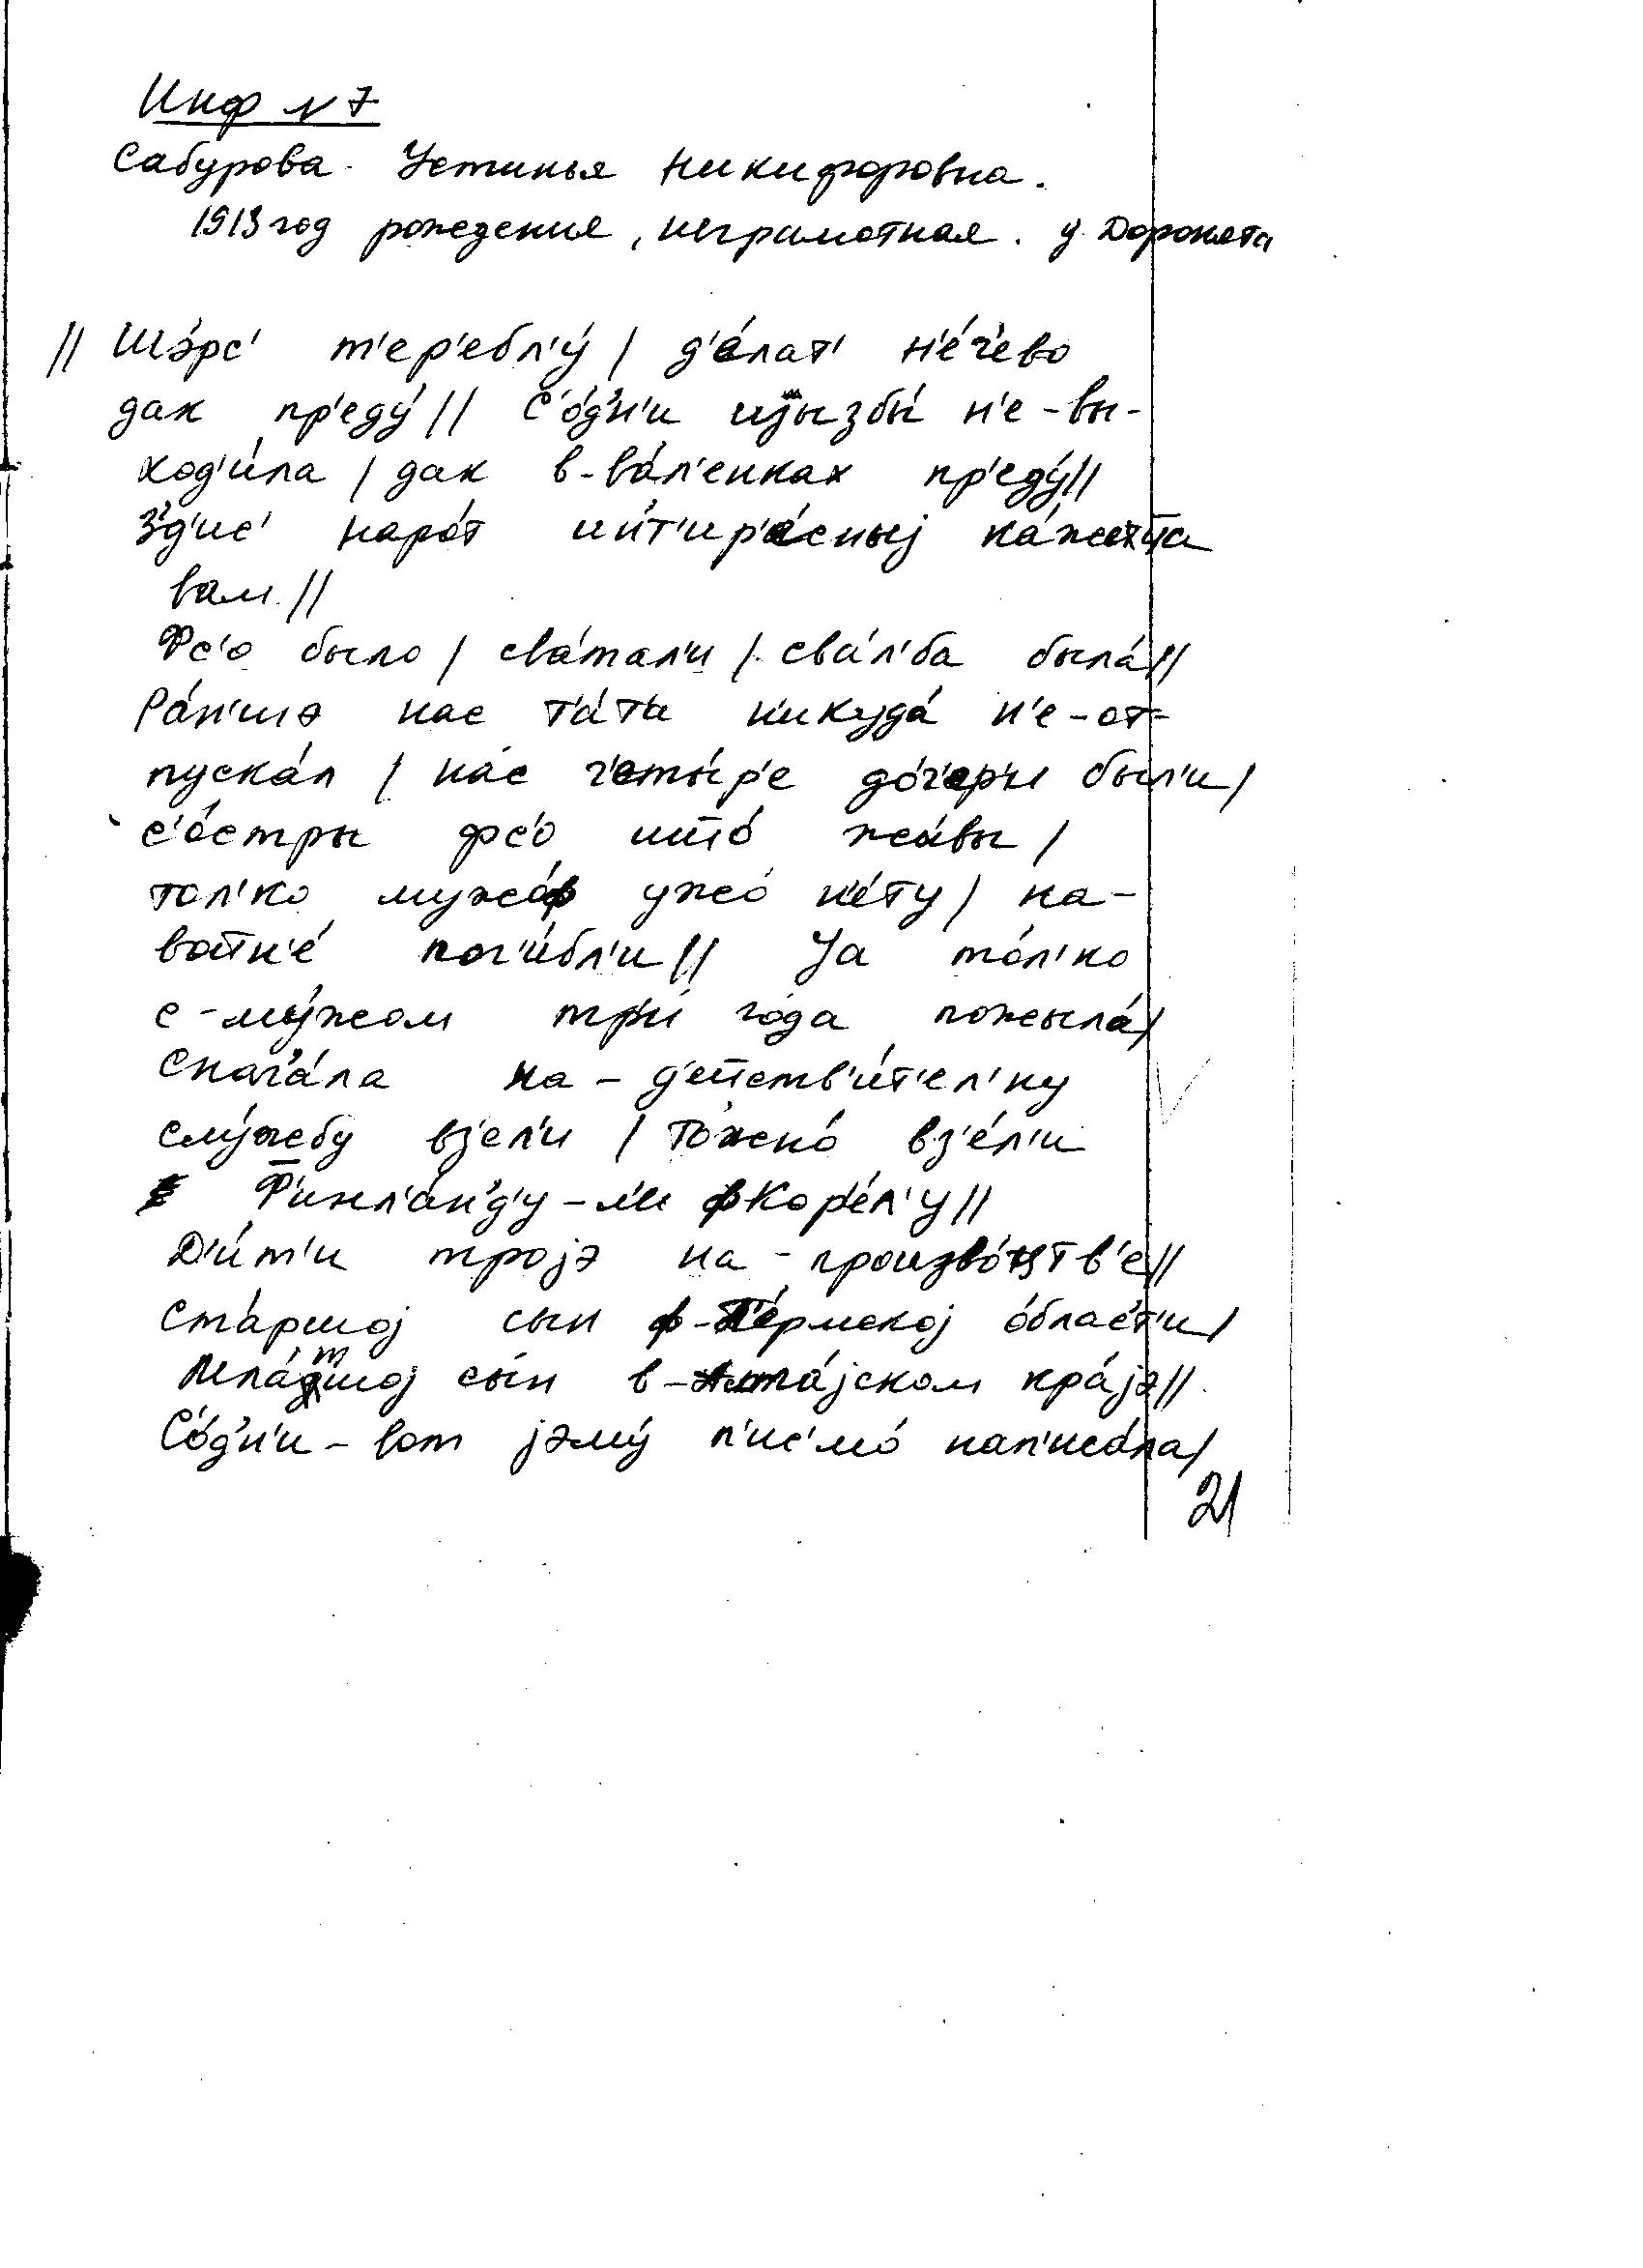 Инф №7
Сабурова Устинья Никифоровна.
1913 год рождения, неграмотная. у Доронята
// Шэ́рс' т'ер'ебл'у́ / д'е́лат' н'е́ч'ево
дак пр'еду́ // С'о́д'н'и изызбы́ н'е-вы-
ход'и́ла / дак в-ва́л'енках пр'еду́//
З'д'ис' наро́т ин'т'ир'е́сныј ка́жетца
вам //
Фс'о было / сва́тал'и / сва́л'ба была́//
Ра́н'шэ нас та́т'а никуда́ н'е-от-
пуска́л / на́с ч'еты́р'е до́ч'ер'и был'и/
с'о́стры фс'о што́ жы́вы /
тол'ко мужо́ф ужо́ н'е́ту / на-
войн'е́ пог'и́бл'и // Ја то́л'ко
с-му́жом тр'и́ го́да пожыла́/
снач'а́ла на-д'ейств'и́т'ел'ну
слу́жебу вз'ел'и / то́жно́ вз'е́л'и
Ф'инл'а́н'д'у-л'и фКор'е́л'у//
Д'и́т'и тројэ на-произво́цтв'е//
Ста́ршој сын ф-П'е́рмској о́бласт'и/
Мла́тшој сы́н в-Алта́јском кра́јэ//
С'о́д'н'и-вот јэму́ п'ис'мо́ нап'иса́ла/
21